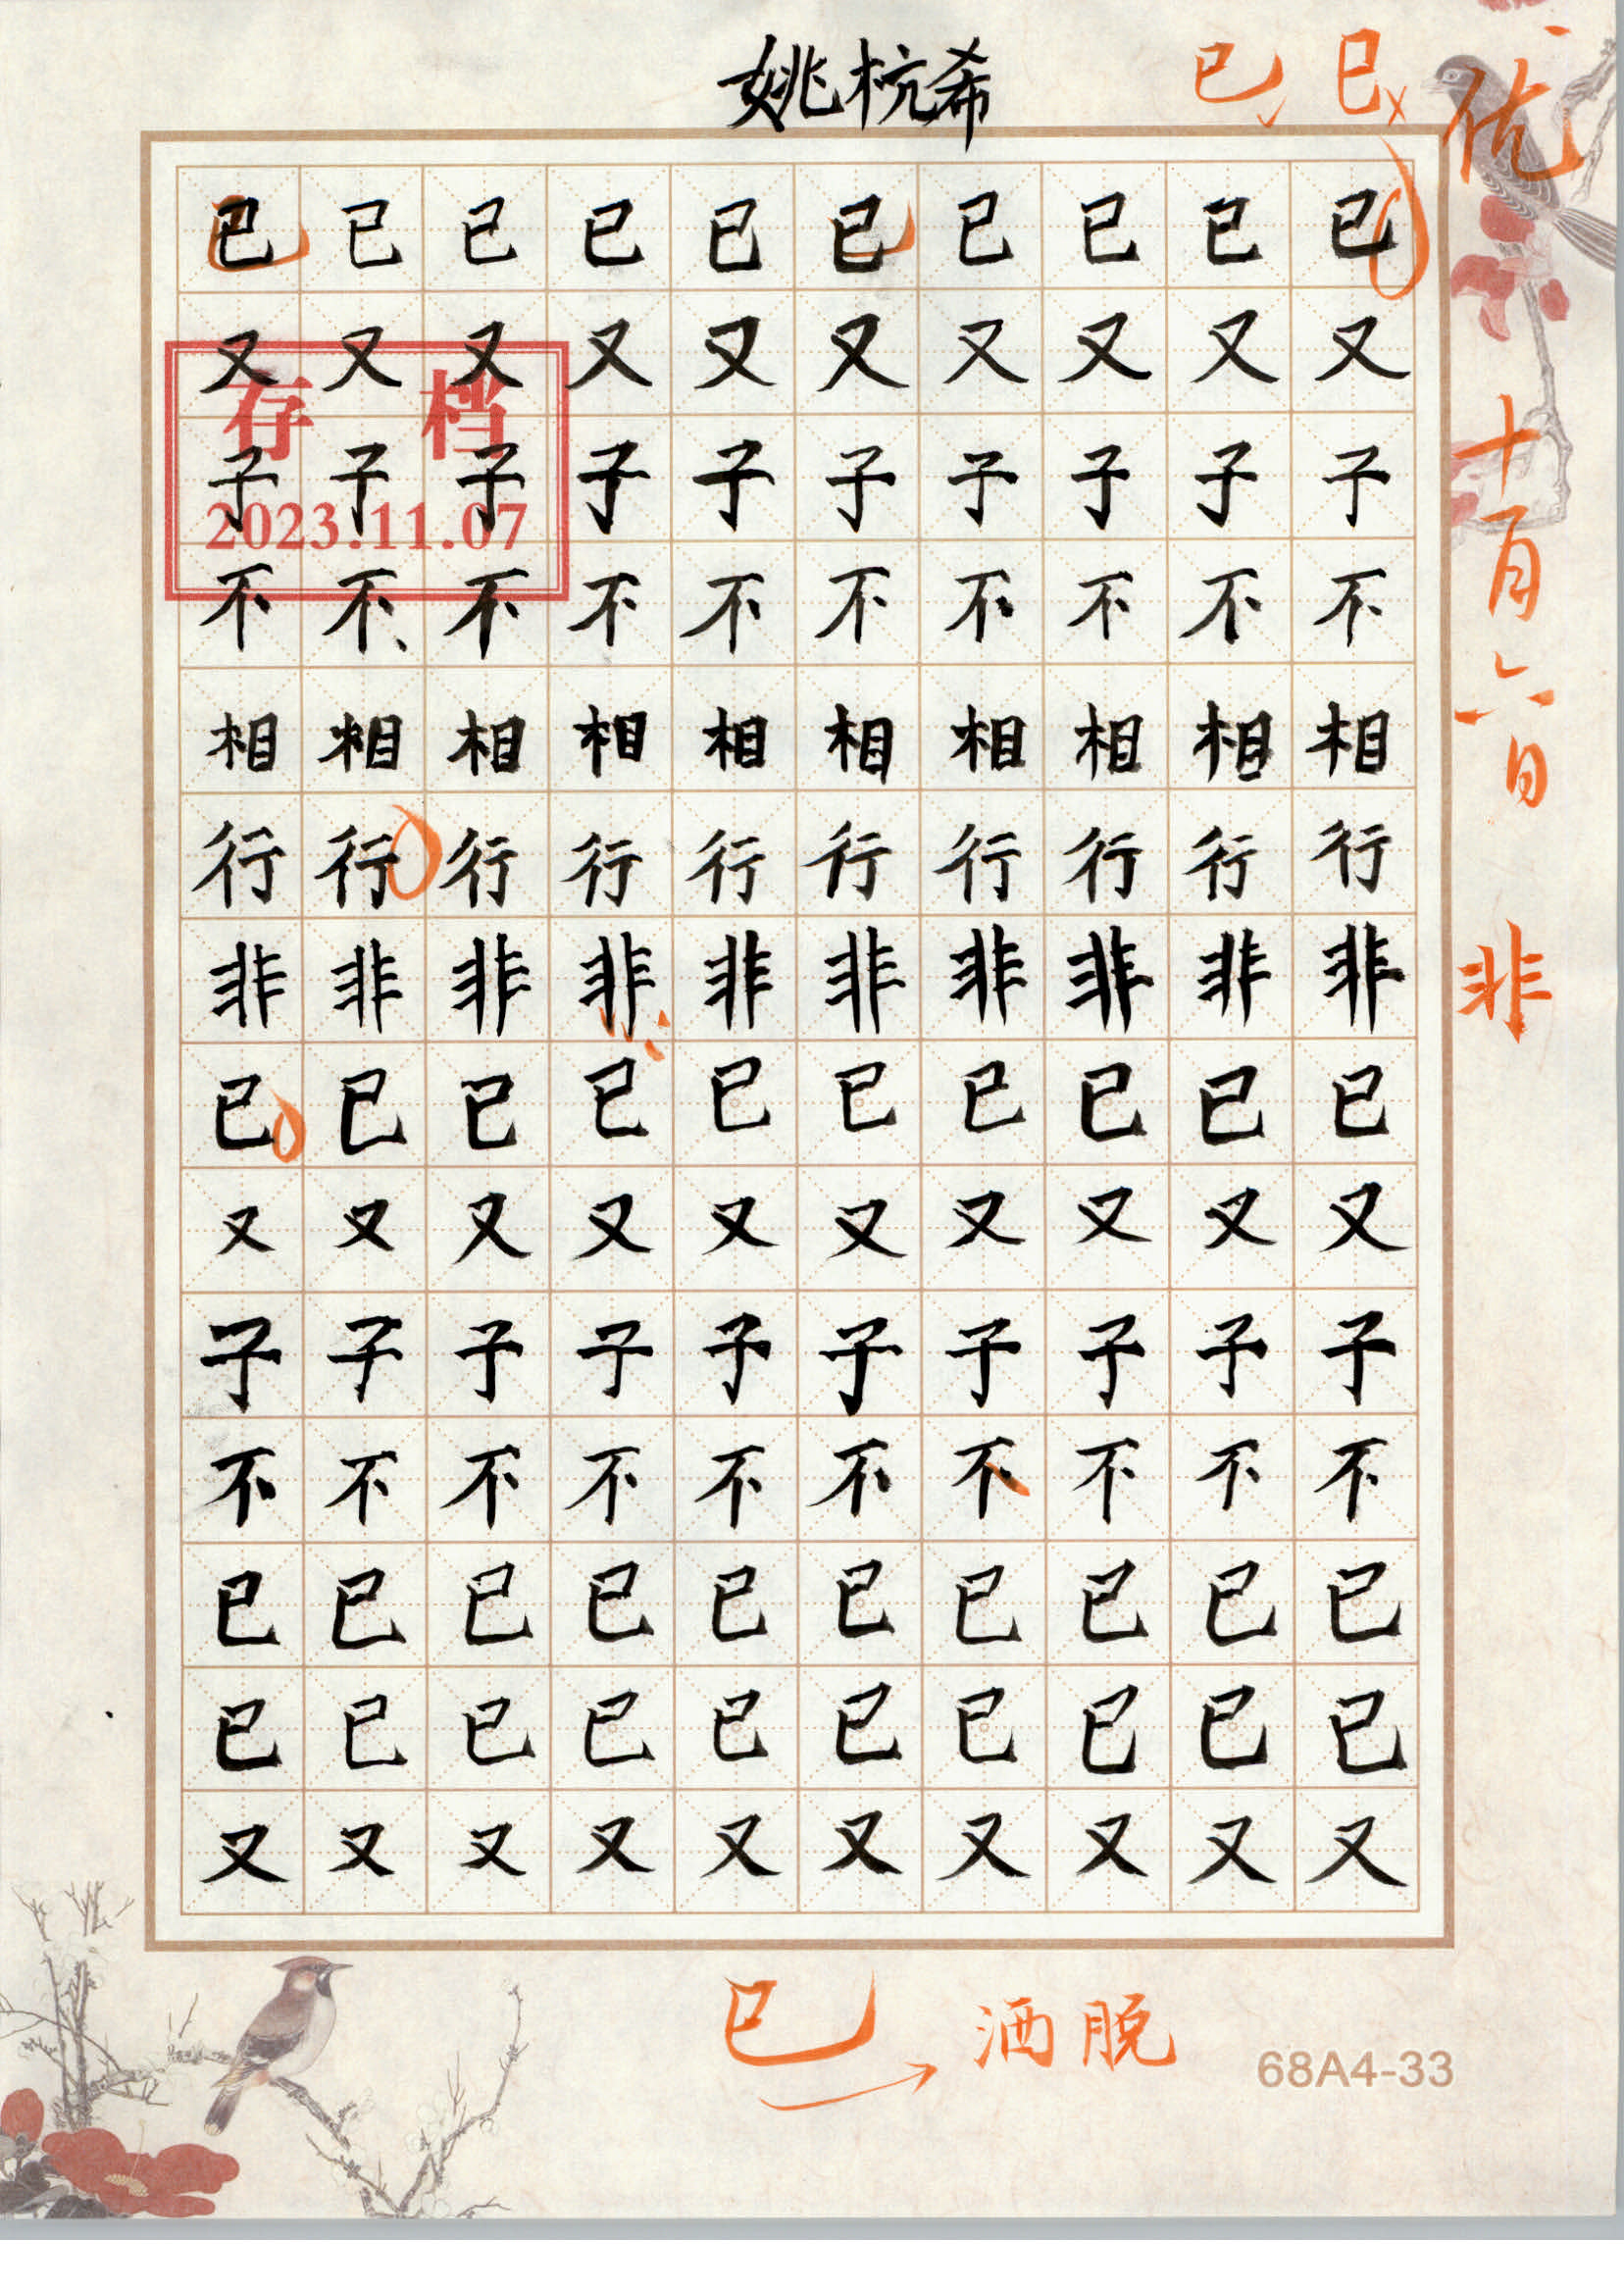 姚杭希
已 已 优
已 已 已 已 已 已 已 已 已 已
又 又 又 又 又 又 又 又 又 又
存 档
子 子 子 子 子 子 子 子 子 子
2023.11.07
不 不 不 不 不 不 不 不 不 不
相 相 相 相 相 相 相 相 相 相
行 行 行 行 行 行 行 行 行 行
非 非 非 非 非 非 非 非 非 非
已 已 已 已 已 已 已 已 已 已
又 又 又 又 又 又 又 又 又 又
子 子 子 子 子 子 子 子 子 子
不 不 不 不 不 不 不 不 不 不
已 已 已 已 已 已 已 已 已 已
已 已 已 已 已 已 已 已 已 已
又 又 又 又 又 又 又 又 又 又
十月六日
非
已 洒脱
68A4-33